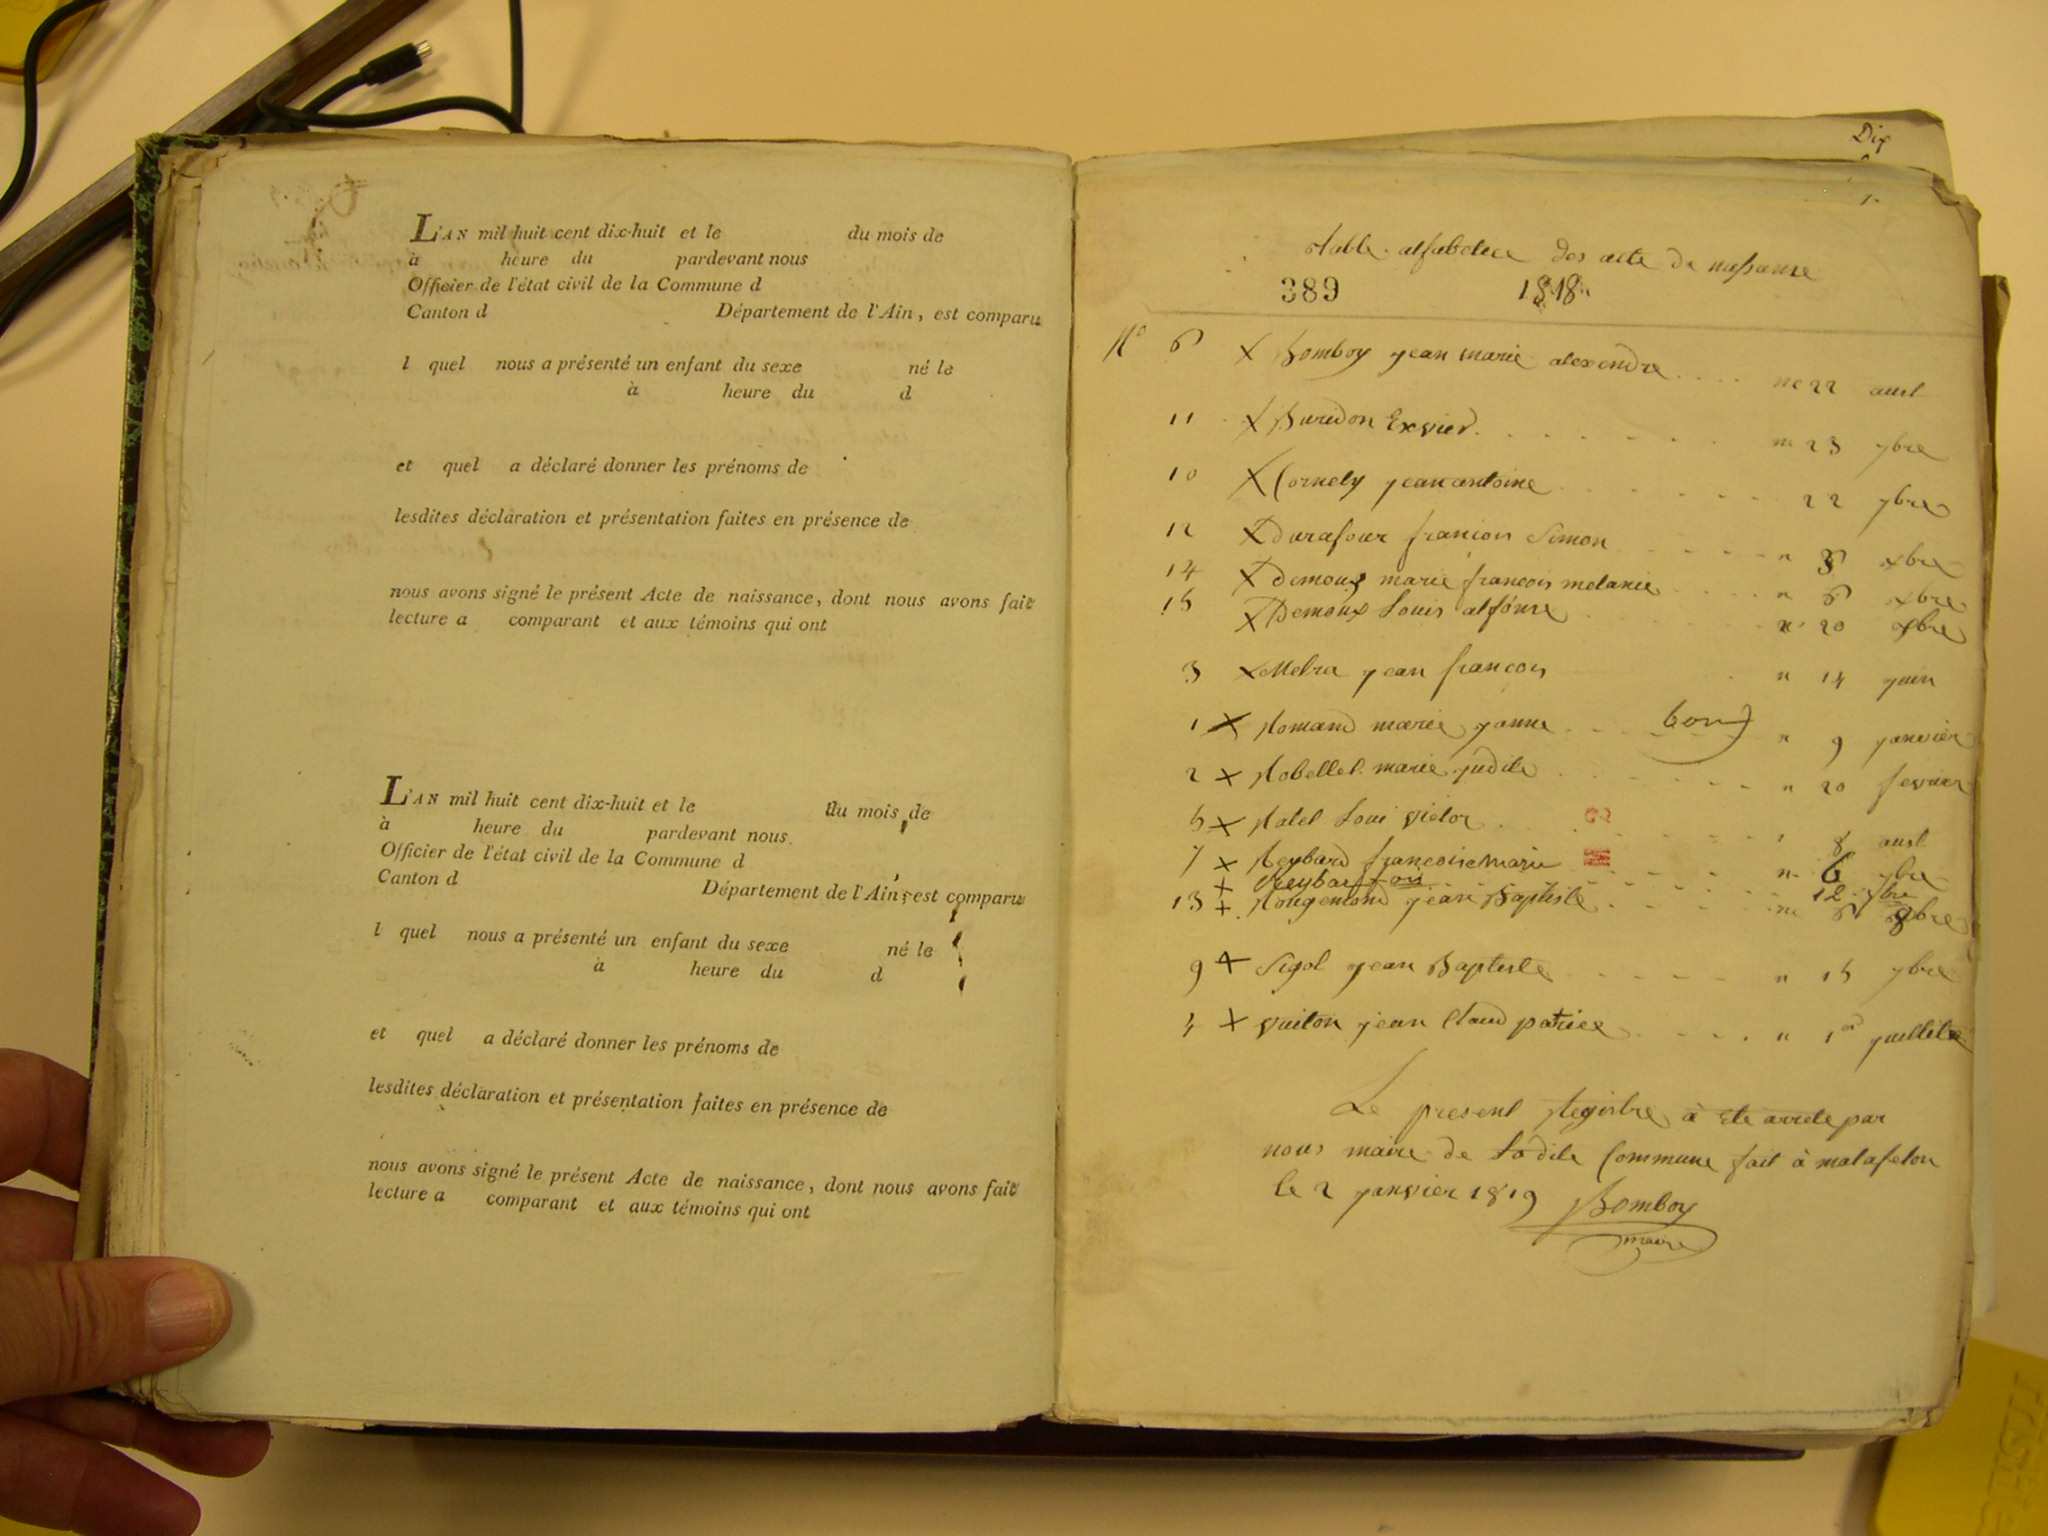 L'AN mil huit cent dix-huit et le du mois de
à heure du pardevant nous
Officier de l'état civil de la Commune d
Canton d Département de l'Ain, est comparu
l quel nous a présenté un enfant du sexe né le
à heure du d
et quel a déclaré donner les prénoms de
lesdites déclaration et présentation faites en présence de
nous avons signé le présent Acte de naissance, dont nous avons fait
lecture a comparant et aux témoins qui ont
L'AN mil huit cent dix-huit et le du mois de
à heure du pardevant nous
Officier de l'état civil de la Commune d
Canton d Département de l'Ain, est comparu
l quel nous a présenté un enfant du sexe né le
à heure du d
et quel a déclaré donner les prénoms de
lesdites déclaration et présentation faites en présence de
nous avons signé le présent Acte de naissance, dont nous avons fait
lecture a comparant et aux témoins qui ont
Dix
table alfabetice des acte de naissance
389 1818
No 6 x Bomboy jean marie alexendre .... ne 22 aust
11 x Buredon Exvier ne 23 7bre
10 x Cornely jean antoine 22 7bre
12 x Durafour francois Simon n 8 xbre
14 x Demoux marie francois melanie n 6 xbre
15 x Demoux Louis alfonse n 20 xbre
3 x Melra jean francois n 14 juin
1 x Romand marie janne bon n 9 janvier
2 x Robellet marie judite n 20 fevrier
5 x Ratel Loui victor 8 aust
7 x Reybard francoise marie n 6 7bre
x Reybard fois 12 7bre
13 x Rougemond jean Baptiste ne 6 xbre
9 x Sigol jean Baptiste n 15 7bre
4 x vuiton jean Claud patrice n 1er juillete
Le present Registre à ete arrete par
nous maire de Ladite Commune fait à matafelon
le 2 janvier 1819 Bomboy
maire